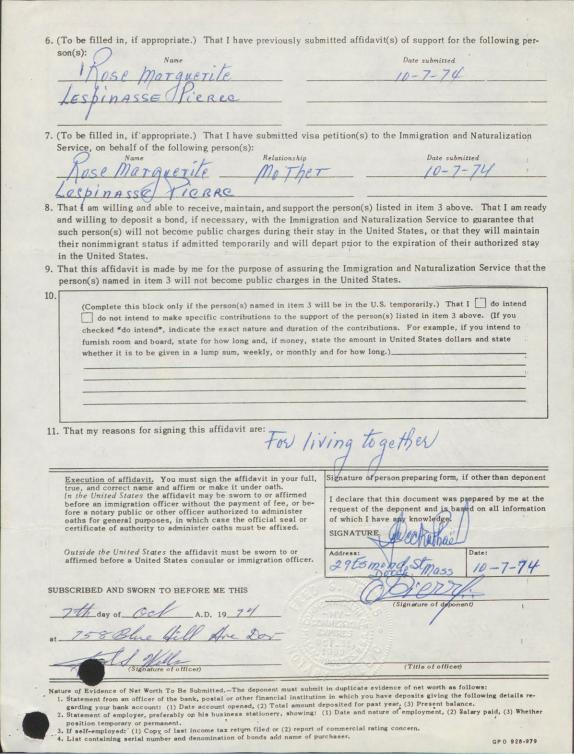 6. (To be filled in, if appropriate.) That I have previously submitted affidavit(s) of support for the following per-
son(s):
Name Date submitted
Rose Marguerite 10-7-74
Lespinasse Pierre
7. (To be filled in, if appropriate.) That I have submitted visa petition(s) to the Immigration and Naturalization
Service, on behalf of the following person(s):
Name Relationship Date submitted
Rose Marguerite Mother 10-7-74
Lespinasse Pierre
8. That I am willing and able to receive, maintain, and support the person(s) listed in item 3 above. That I am ready
and willing to deposit a bond, if necessary, with the Immigration and Naturalization Service to guarantee that
such person(s) will not become public charges during their stay in the United States, or that they will maintain
their nonimmigrant status if admitted temporarily and will depart prior to the expiration of their authorized stay
in the United States.
9. That this affidavit is made by me for the purpose of assuring the Immigration and Naturalization Service that the
person(s) named in item 3 will not become public charges in the United States.
10.
(Complete this block only if the person(s) named in item 3 will be in the U.S. temporarily.) That I do intend
do not intend to make specific contributions to the support of the person(s) listed in item 3 above. (If you
checked "do intend", indicate the exact nature and duration of the contributions. For example, if you intend to
furnish room and board, state for how long and, if money, state the amount in United States dollars and state
whether it is to be given in a lump sum, weekly, or monthly and for how long.)
11. That my reasons for signing this affidavit are: For living together
Execution of affidavit. You must sign the affidavit in your full,
true, and correct name and affirm or make it under oath.
In the United States the affidavit may be sworn to or affirmed
before an immigration officer without the payment of fee, or be-
fore a notary public or other officer authorized to administer
oaths for general purposes, in which case the official seal or
certificate of authority to administer oaths must be affixed.
Outside the United States the affidavit must be sworn to or
affirmed before a United States consular or immigration officer.
Signature of person preparing form, if other than deponent
I declare that this document was prepared by me at the
request of the deponent and is based on all information
of which I have any knowledge.
SIGNATURE
Address: Date:
29 Esmond St
Dorch Mass 10-7-74
SUBSCRIBED AND SWORN TO BEFORE ME THIS
(Signature of deponent)
7th day of Oct A.D. 19 74
at 758 Blue Hill Ave Dor
(Signature of officer) (Title of officer)
Nature of Evidence of Net Worth To Be Submitted.—The deponent must submit in duplicate evidence of net worth as follows:
1. Statement from an officer of the bank, postal or other financial institution in which you have deposits giving the following details re-
garding your bank account: (1) Date account opened, (2) Total amount deposited for past year, (3) Present balance.
2. Statement of employer, preferably on his business stationery, showing: (1) Date and nature of employment, (2) Salary paid, (3) Whether
position temporary or permanent.
3. If self-employed: (1) Copy of last income tax return filed or (2) report of commercial rating concern.
4. List containing serial number and denomination of bonds and name of purchaser.
GPO 928-979